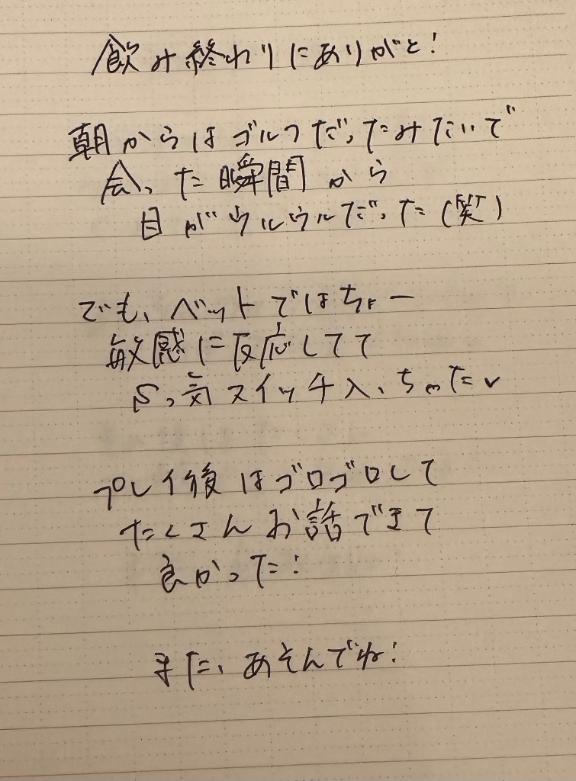 飲み終わりにありがと!
朝からはゴルフだったみたいで
会った瞬間から
目がウルウルだった(笑)
でも、ベットではちょー
敏感に反応してて
Sっ気スイッチ入っちゃったv
プレイ後はゴロゴロして
たくさんお話できて
良かった!
また、あそんでね!